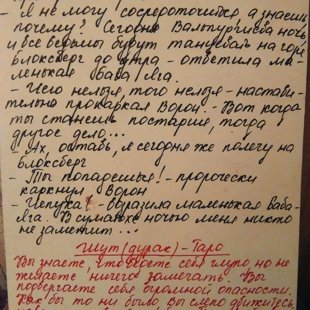 - Я не могу сосредоточится, а знаешь
почему? Сегодня Вальпургиева ночь
и все ведьмы будут танцевать на горе
Блоксберг до утра - ответила ма-
ленькая баба Яга.
- Чего нельзя, того нельзя - настави-
тельно прокаркал Ворон. - Вот когда
ты станешь постарше, тогда
другое дело...
- Ах, оставь, я сегодня же полечу на
Блоксберг
- Ты попадешься! - пророчески
каркнул Ворон
- Чепуха! - возразила маленькая Баба-
Яга. В суматохе ночью меня никто
не заметит...
Шут (дурак) - Таро
Вы знаете, что ведете себя глупо но не
желаете ничего замечать. Вы
подвергаете себя огромной опасности.
Как бы то ни было вы слепо движетесь